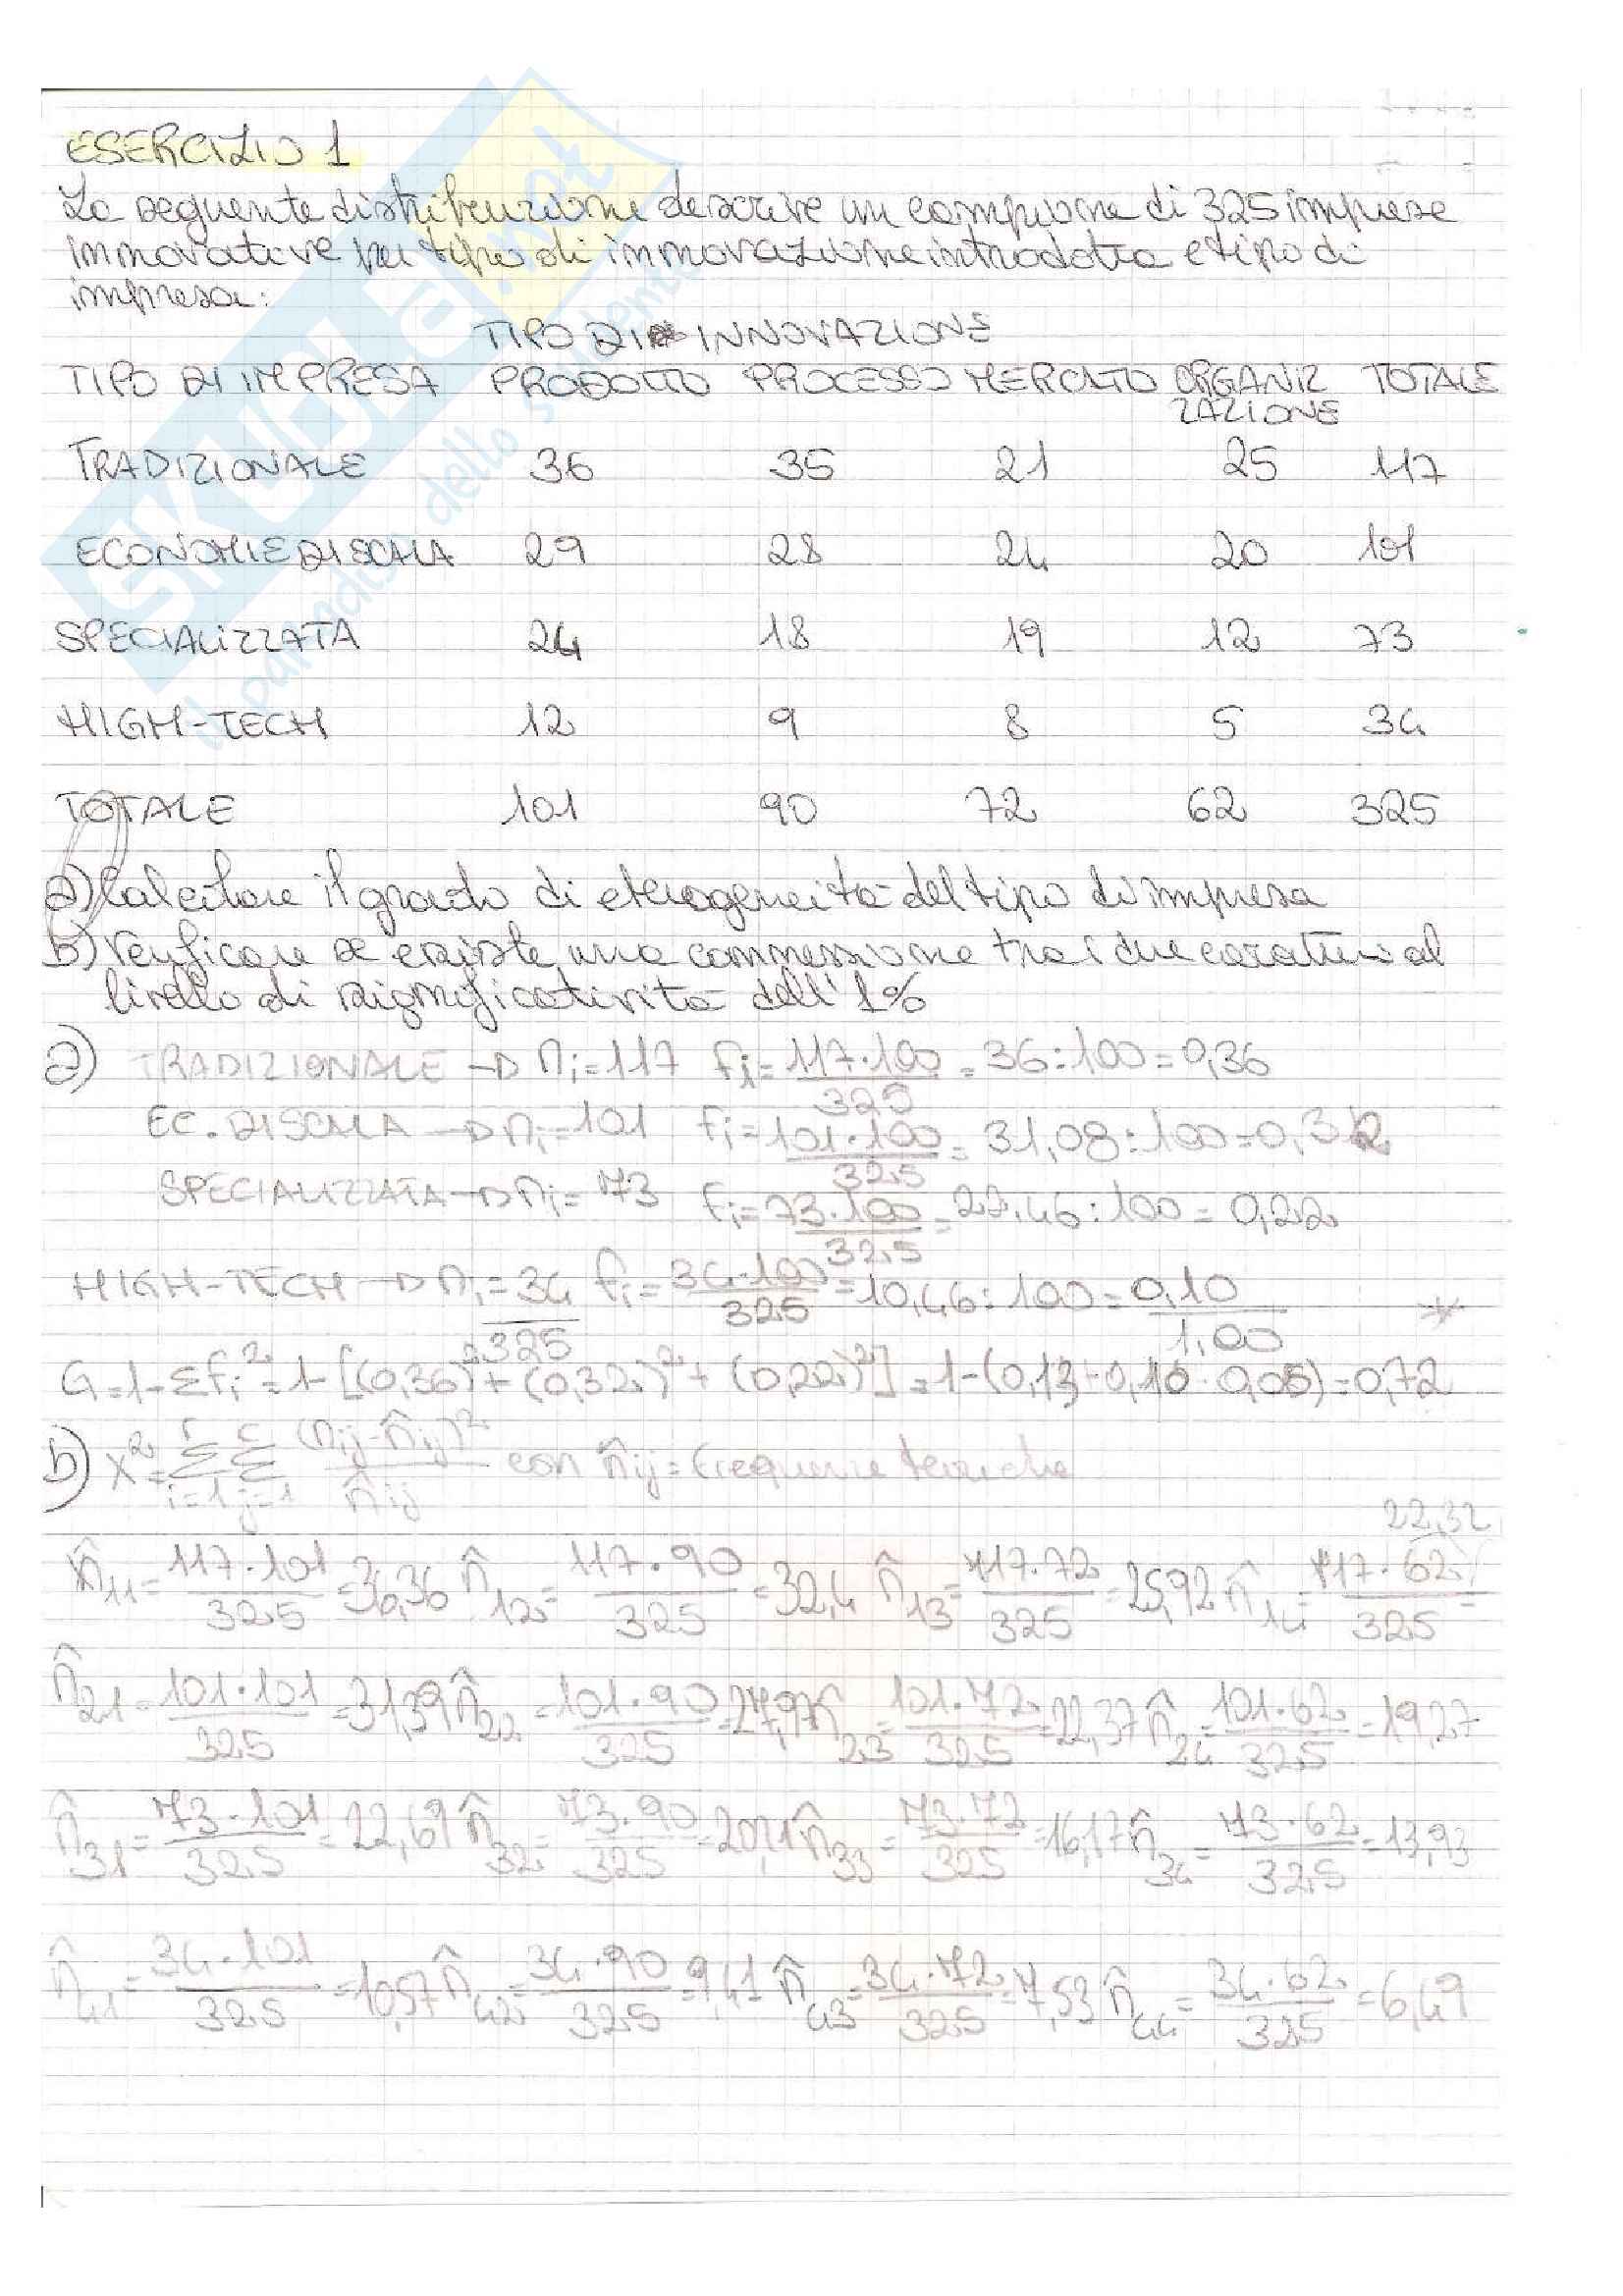 ESERCIZIO 1
La seguente distribuzione descrive un campione di 325 imprese
innovative per tipo di innovazione introdotta e tipo di
impresa:
TIPO DI INNOVAZIONE
TIPO DI IMPRESA PRODOTTO PROCESSO MERCATO ORGANIZ TOTALE
ZAZIONE
TRADIZIONALE 36 35 21 25 117
ECONOMIE DI SCALA 29 28 24 20 101
SPECIALIZZATA 24 18 19 12 73
HIGH-TECH 12 9 8 5 34
TOTALE 101 90 72 62 325
a) Calcolare il grado di eterogeneità del tipo di impresa
b) Verificare se esiste una connessione tra i due caratteri al
livello di significatività dell'1%
a) TRADIZIONALE → ni = 117 fi = 117·100/325 = 36:100 = 0,36
EC. DI SCALA → ni = 101 fi = 101·100/325 = 31,08:100 = 0,32
SPECIALIZZATA → ni = 73 fi = 73·100/325 = 22,46:100 = 0,22
HIGH-TECH → ni = 34 fi = 34·100/325 = 10,46:100 = 0,10
325 1,00
G = 1-Σfi² = 1-[(0,36)²+(0,32)²+(0,22)²] = 1-(0,13+0,10+0,05) = 0,72
b) X² = Σ Σ (nij - n̂ij)²/n̂ij con n̂ij = frequenze teoriche
22,32
n̂11 = 117·101/325 = 36,36 n̂12 = 117·90/325 = 32,4 n̂13 = 117·72/325 = 25,92 n̂14 = 117·62/325 =
n̂21 = 101·101/325 = 31,39 n̂22 = 101·90/325 = 27,97 n̂23 = 101·72/325 = 22,37 n̂24 = 101·62/325 = 19,27
n̂31 = 73·101/325 = 22,69 n̂32 = 73·90/325 = 20,21 n̂33 = 73·72/325 = 16,17 n̂34 = 73·62/325 = 13,93
n̂41 = 34·101/325 = 10,57 n̂42 = 34·90/325 = 9,41 n̂43 = 34·72/325 = 7,53 n̂44 = 34·62/325 = 6,49
SKUOLA.net
il paradiso dello studente